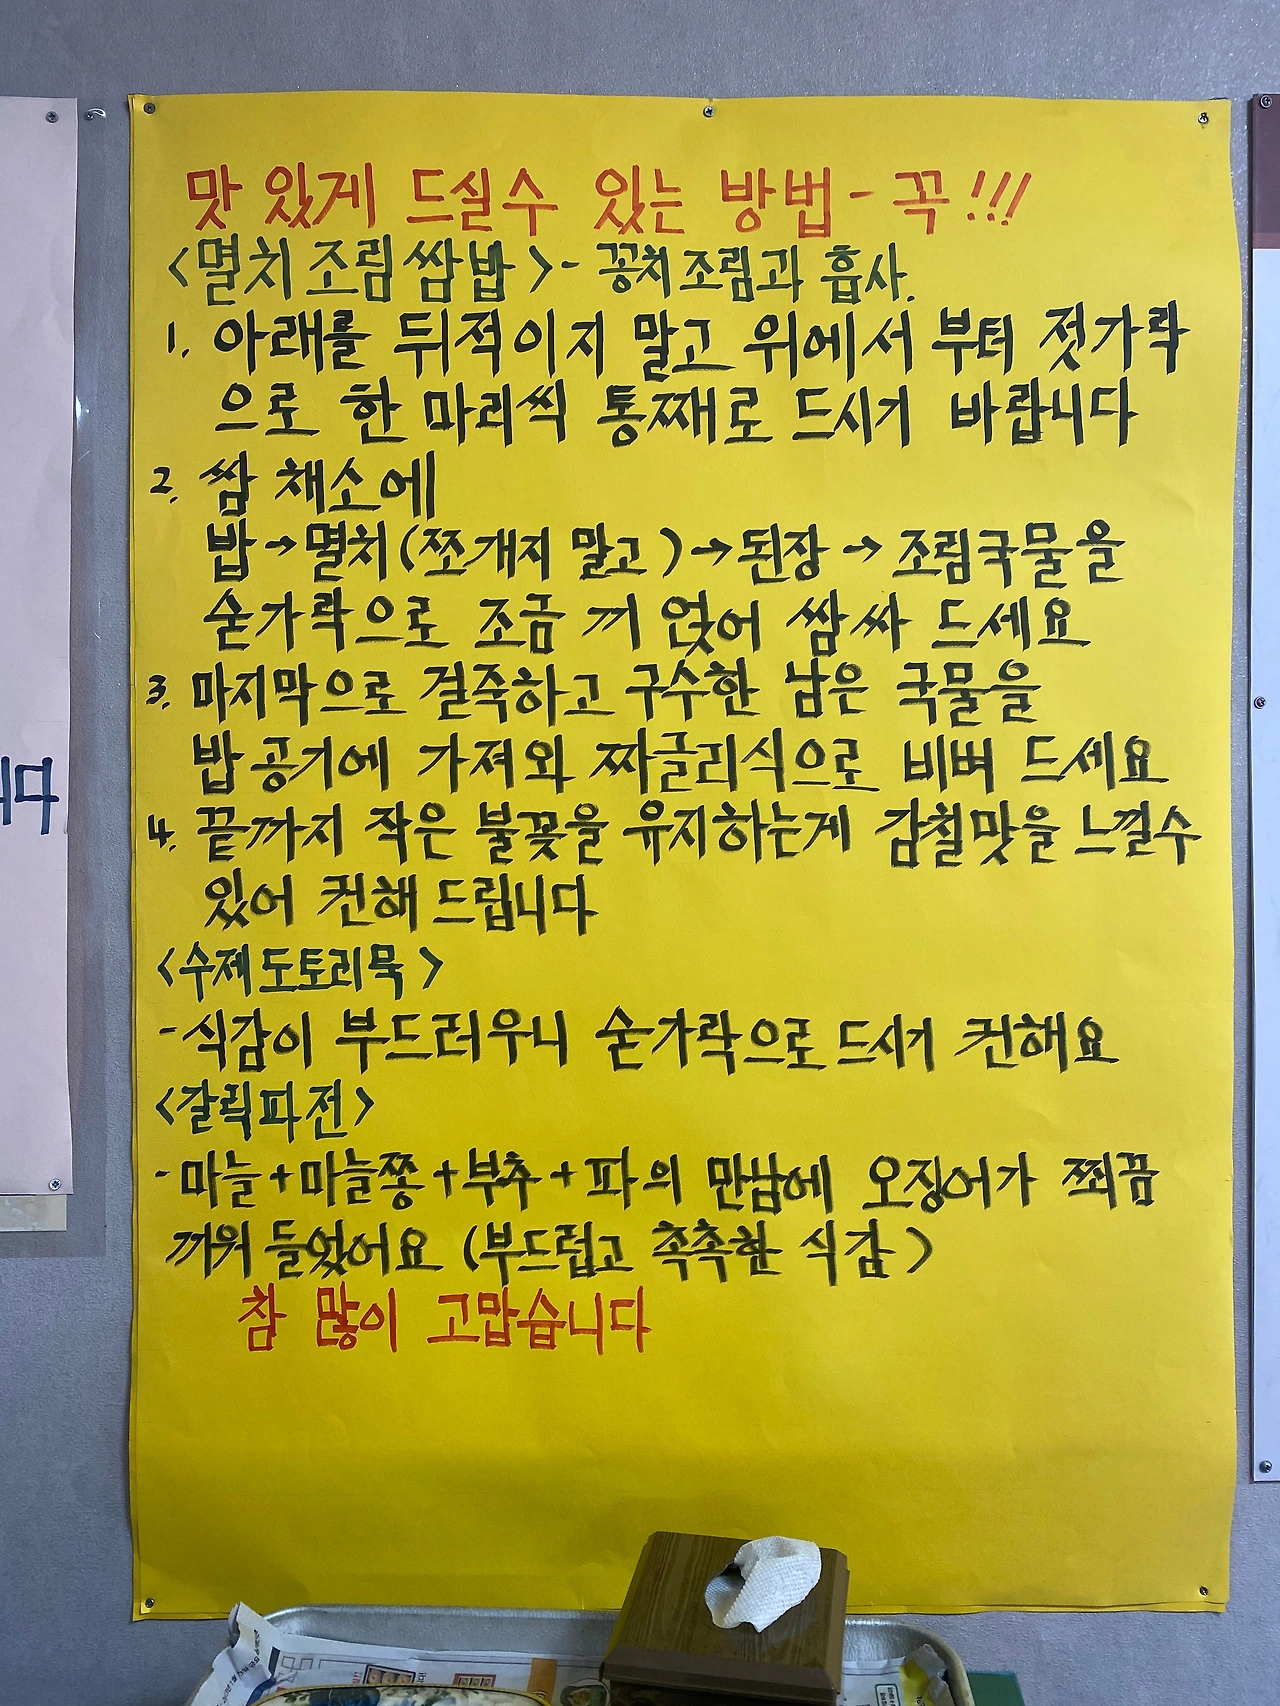 맛있게 드실수 있는 방법 - 꼭!!!
<멸치조림쌈밥> - 꽁치조림과 흡사.
1. 아래를 뒤적이지 말고 위에서 부터 젓가락
으로 한 마리씩 통째로 드시기 바랍니다
2. 쌈 채소에
밥→멸치(쪼개지 말고)→된장→조림국물을
숟가락으로 조금 끼얹어 쌈싸 드세요
3. 마지막으로 걸죽하고 구수한 남은 국물을
밥공기에 가져와 짜글리식으로 비벼 드세요
4. 끝까지 작은 불꽃을 유지하는게 감칠맛을 느낄수
있어 컨해 드립니다
<수제도토리묵>
- 식감이 부드러우니 숟가락으로 드시기 컨해요
<갈릭파전>
- 마늘+마늘쫑+부추+파의 만남에 오징어가 쬐끔
끼워 들었어요 (부드럽고 촉촉한 식감)
참 많이 고맙습니다
니다